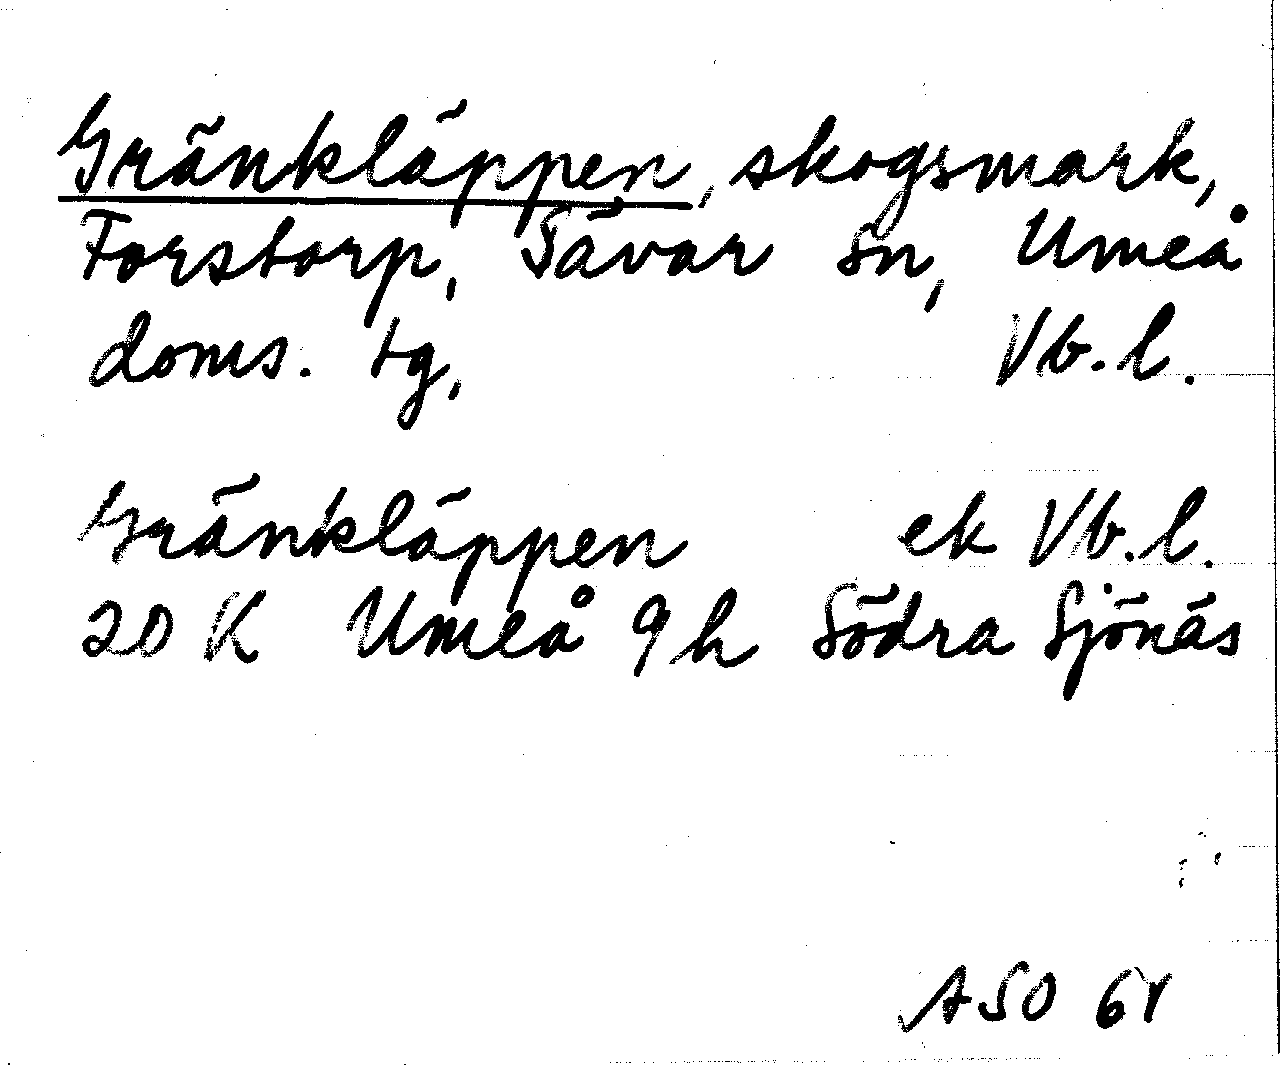 Gränkläppen, skogsmark,
Forstorp, Sävar sn, Umeå
doms. tg, Vb. l.
Gränkläppen ek Vb. l.
20 K Umeå 9 h Södra Sjönäs
ASO